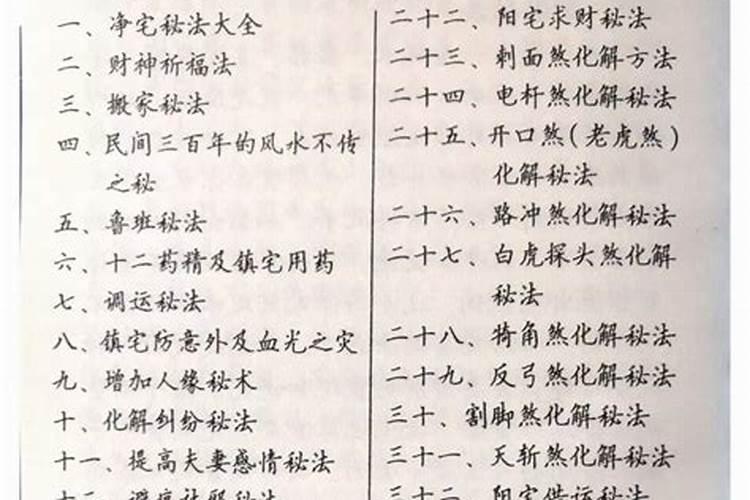 一、净宅秘法大全
二、财神祈福法
三、搬家秘法
四、民间三百年的风水不传
之秘
五、鲁班秘法
六、十二药精及镇宅用药
七、调运秘法
八、镇宅防意外及血光之灾
九、增加人缘秘术
十、化解纠纷秘法
十一、提高夫妻感情秘法
十二、避病祛邪秘法
二十二、阳宅求财秘法
二十三、刺面煞化解方法
二十四、电杆煞化解秘法
二十五、开口煞(老虎煞)
化解秘法
二十六、路冲煞化解秘法
二十七、白虎探头煞化解
秘法
二十八、犄角煞化解秘法
二十九、反弓煞化解秘法
三十、割脚煞化解秘法
三十一、天斩煞化解秘法
三十二、阳宅催运秘法